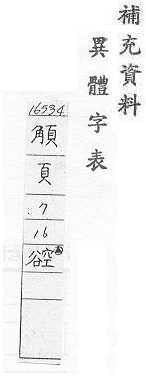 補充資料
異體字表
16534
頁
7
16
谾